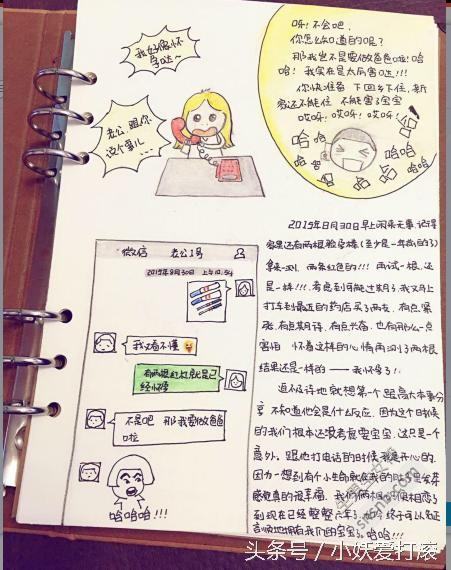 我好像怀
孕哒~
老公,跟你
说个事儿...
呀!不会吧,
你怎么知道的呢?
那我岂不是要做爸爸啦!哈
哈!我实在是太厉害哒!!!
你快准备下回乡下住,新
房还不能住 不能害了宝宝
哎呀!哎呀!哎呀!
哈哈
哈哈
哈哈
哈哈
微信 老公1号
2019年8月30日 上午10:54
我又看不懂
有两根红杠就是已
经怀孕
不是吧 那我要做爸爸
啦
哈哈哈!!!
2019年8月30日早上闲来无事,记得
家里还有两根验孕棒(至少是一年前的了)
拿来一测,两条红色的!!!再试一根,还
是一样!!!考虑到可能过期了,我又马上
打车到最近的药店买了两支,有点紧
张,有点期待,有点兴奋,也有那么一点
害怕 怀着这样的心情再测了两根
结果还是一样的——我怀孕了!
迫不及待地就想第一个跟高大本事分
享,不知道他会是什么反应,因为这个时候
的我们根本还没考虑要宝宝,这只是一个
意外。跟他打电话的时候我是开心的,
因为一想到有个小生命就在我的
感觉真的很幸福,我们俩
到现在已经整整六年了,
哈哈!!!
头条号 / 小妖爱打滚